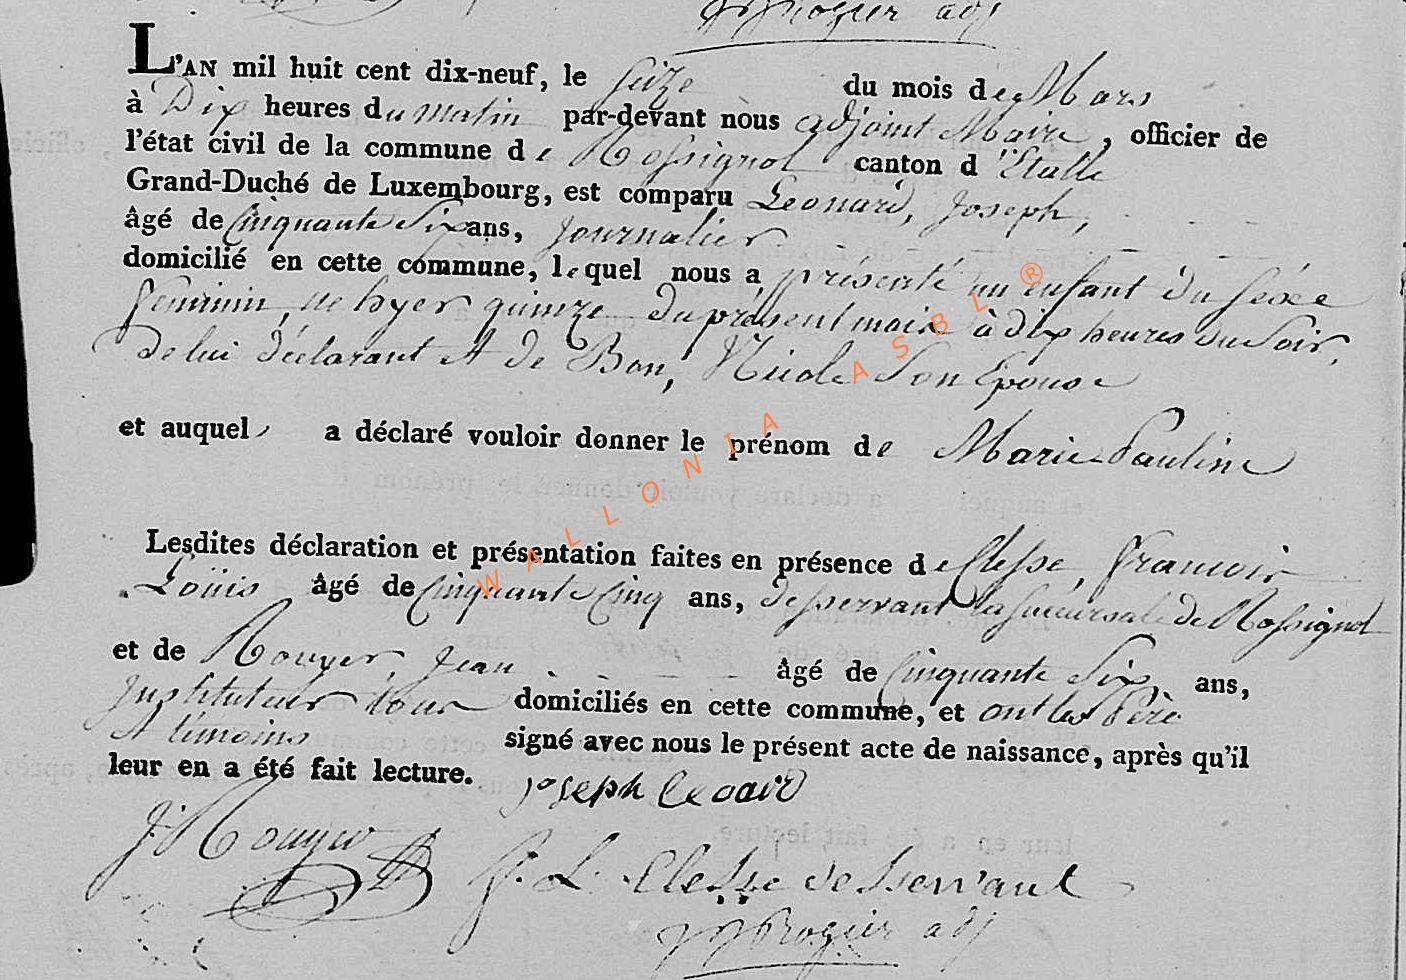 JJ Rogier adj
L'AN mil huit cent dix-neuf, le Seize du mois de Mars
à Dix heures du matin par-devant nous adjoint Maire, officier de
l'état civil de la commune de Rossignol canton d'Etalle
Grand-Duché de Luxembourg, est comparu Leonard, Joseph,
âgé de Cinquante Six ans, journalier
domicilié en cette commune, lequel nous a présenté un enfant du séxe
feminin, né hyer quinze du présent mois à dix heures du Soir,
de lui déclarant et de Bon, Nicole Son Epouse
et auquel a déclaré vouloir donner le prénom de Marie Pauline
Lesdites déclaration et présentation faites en présence de Clesse, Francois
Loüis âgé de Cinquante Cinq ans, desservant la succursale de Rossignol
et de Rouyer, Jean âgé de Cinquante Six ans,
Instituteur tous domiciliés en cette commune, et ont les Père
et témoins signé avec nous le présent acte de naissance, après qu'il
leur en a été fait lecture. joseph Leoard
J. Rouyer
F. L. Clesse desservant
JJ Rogier adj
WALLONIA ASBL ®